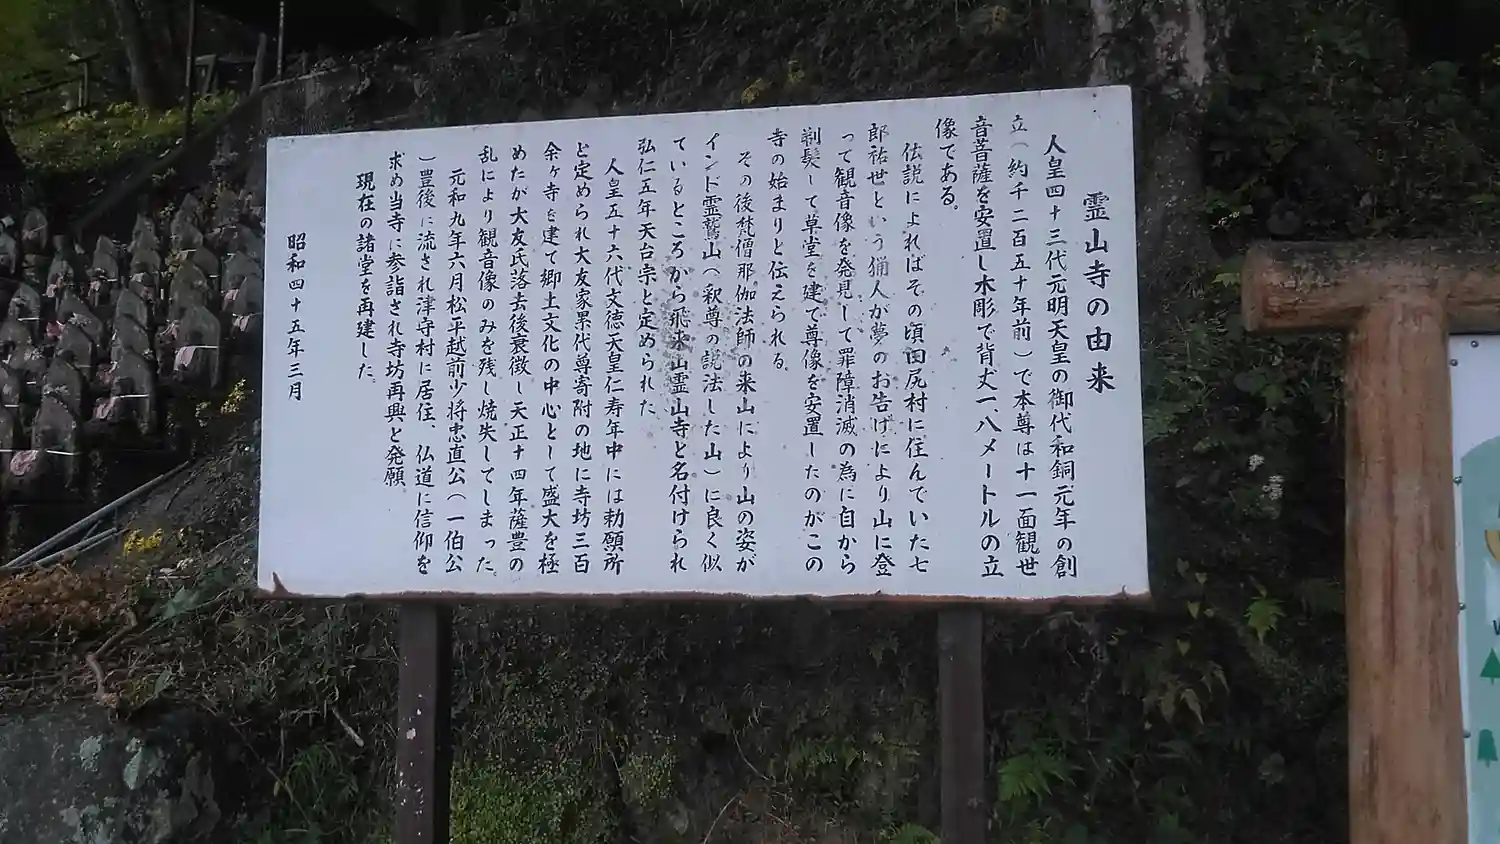 霊山寺の由来
人皇四十三代元明天皇の御代和銅元年の創
立(約千二百五十年前)で本尊は十一面観世
音菩薩を安置し木彫で背丈一、八メートルの立
像である。
伝説によればその頃田尻村に住んでいた七
郎祐世という猟人が夢のお告げにより山に登
って観音像を発見して罪障消滅の為に自から
剃髪して草堂を建て尊像を安置したのがこの
寺の始まりと伝えられる。
その後梵僧那伽法師の来山により山の姿が
インド霊鷲山(釈尊の説法した山)に良く似
ているところから飛来山霊山寺と名付けられ
弘仁五年天台宗と定められた
人皇五十六代文徳天皇仁寿年中には勅願所
と定められ大友家累代尊寄附の地に寺坊三百
余ヶ寺を建て郷土文化の中心として盛大を極
めたが大友氏落去後衰微し天正十四年薩豊の
乱により観音像のみを残し焼失してしまった。
元和九年六月松平越前少将忠直公(一伯公
)豊後に流され津守村に居住、仏道に信仰を
求め当寺に参詣され寺坊再興と発願
現在の諸堂を再建した。
昭和四十五年三月